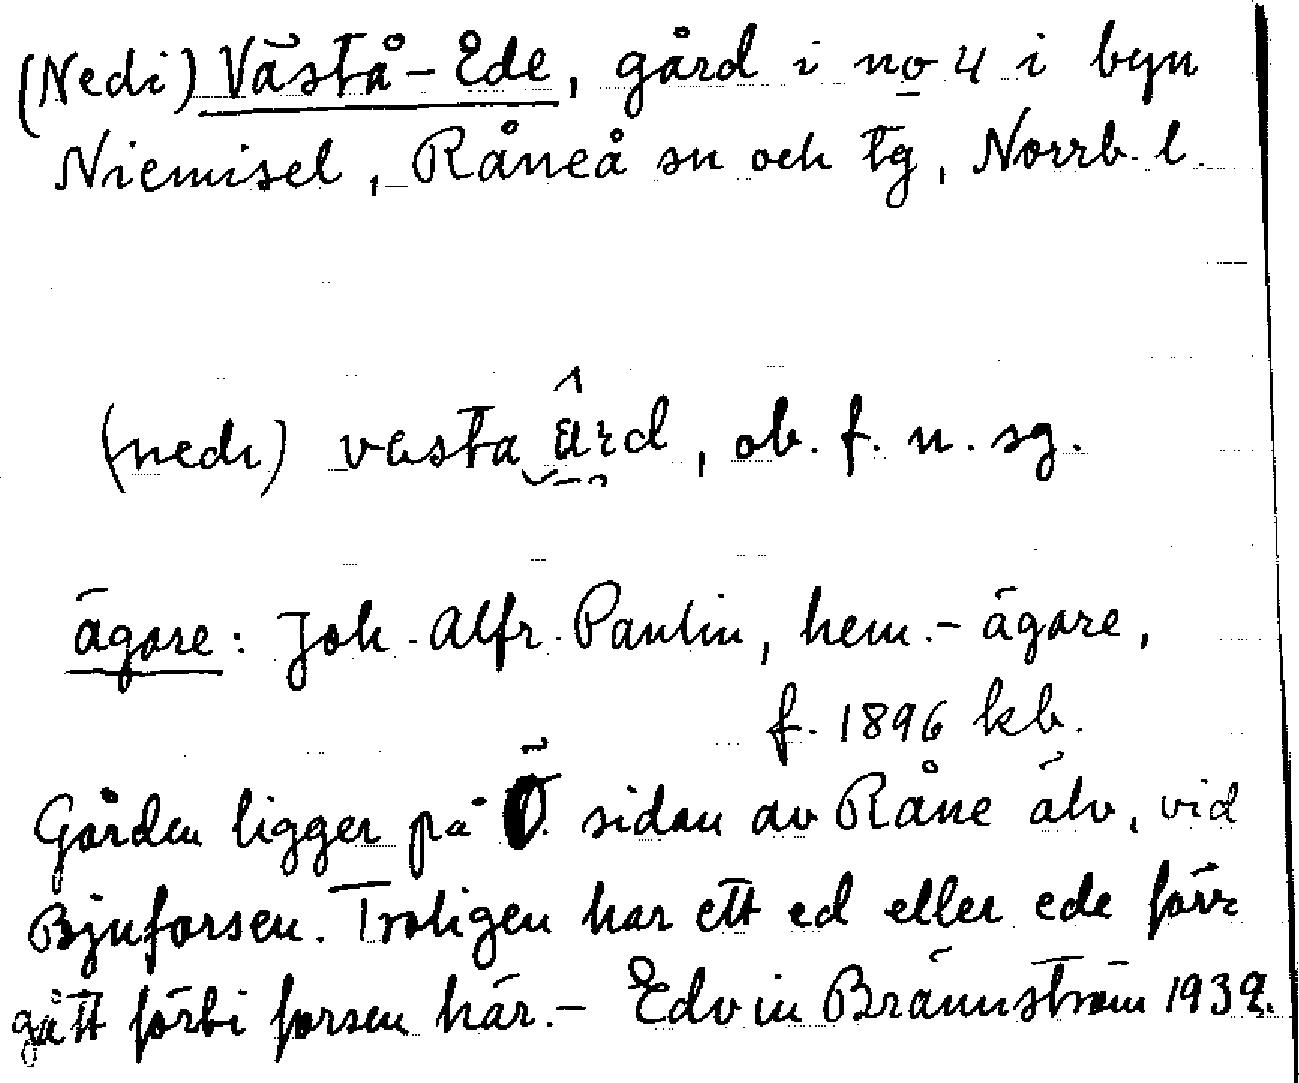 (Nedi) Västå-Ede, gård i no 4 i byn
Niemisel, Råneå sn och tg, Norrb. l.
(nedi) västa ârd, ob. f. n. sg.
ägare: Joh. Alfr. Paulin, hem.-ägare,
f. 1896 kb.
Gården ligger på Ö. sidan av Råne älv, vid
Bjuforsen. Troligen har ett ed eller ede förr
gått förbi forsen här. - Edvin Brännström 1939.